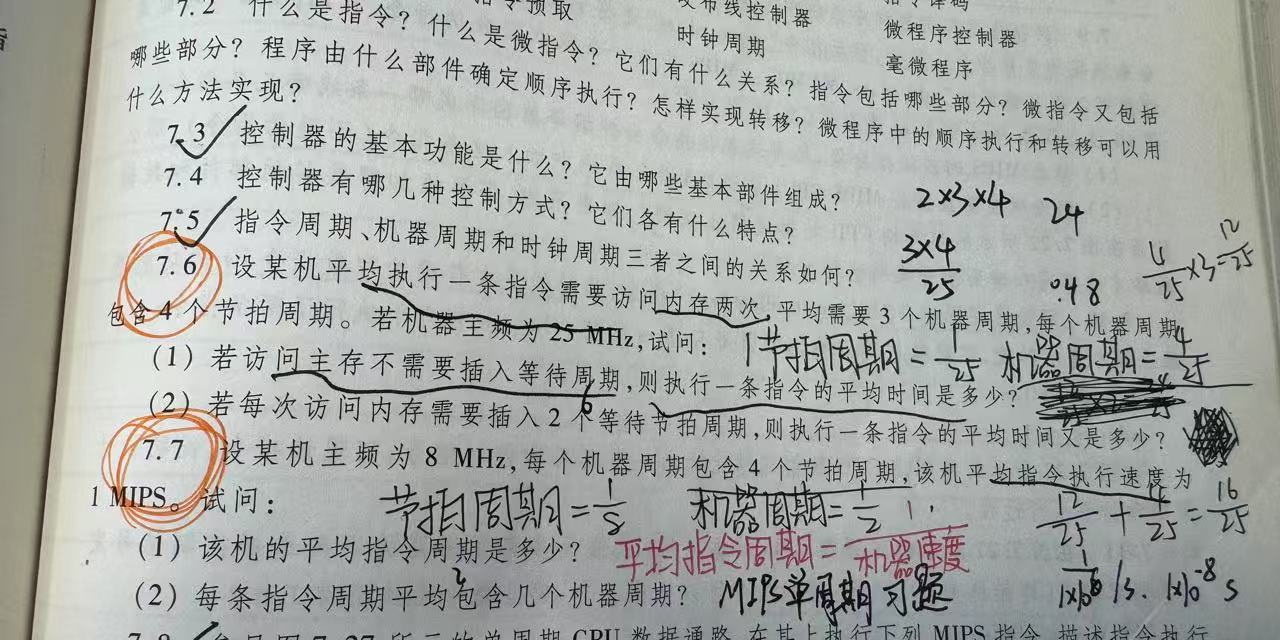 7.2 什么是指令？什么是微指令？它们有什么关系？指令包括哪些部分？微指令又包括
指令预取
发布线控制器
时钟周期
微程序控制器
毫微程序
哪些部分？程序由什么部件确定顺序执行？怎样实现转移？微程序中的顺序执行和转移可以用
什么方法实现？
7.3 控制器的基本功能是什么？它由哪些基本部件组成？
7.4 控制器有哪几种控制方式？它们各有什么特点？
2×3×4 24
7.5 指令周期、机器周期和时钟周期三者之间的关系如何？
3×4/25 .48 4/25×3=12/25
7.6 设某机平均执行一条指令需要访问内存两次，平均需要 3 个机器周期，每个机器周期
包含 4 个节拍周期。若机器主频为 25 MHz，试问：
1节拍周期=1/25 机器周期=4/25
（1）若访问主存不需要插入等待周期，则执行一条指令的平均时间是多少？
（2）若每次访问内存需要插入 2 个等待节拍周期，则执行一条指令的平均时间又是多少？
7.7 设某机主频为 8 MHz，每个机器周期包含 4 个节拍周期，该机平均指令执行速度为
1 MIPS。试问：
节拍周期=1/8 机器周期=1/2 12/25+4/25=16/25
（1）该机的平均指令周期是多少？
平均指令周期=1/机器速度
（2）每条指令周期平均包含几个机器周期？
2
MIPS单周期习题
/s. 1×10-8 s